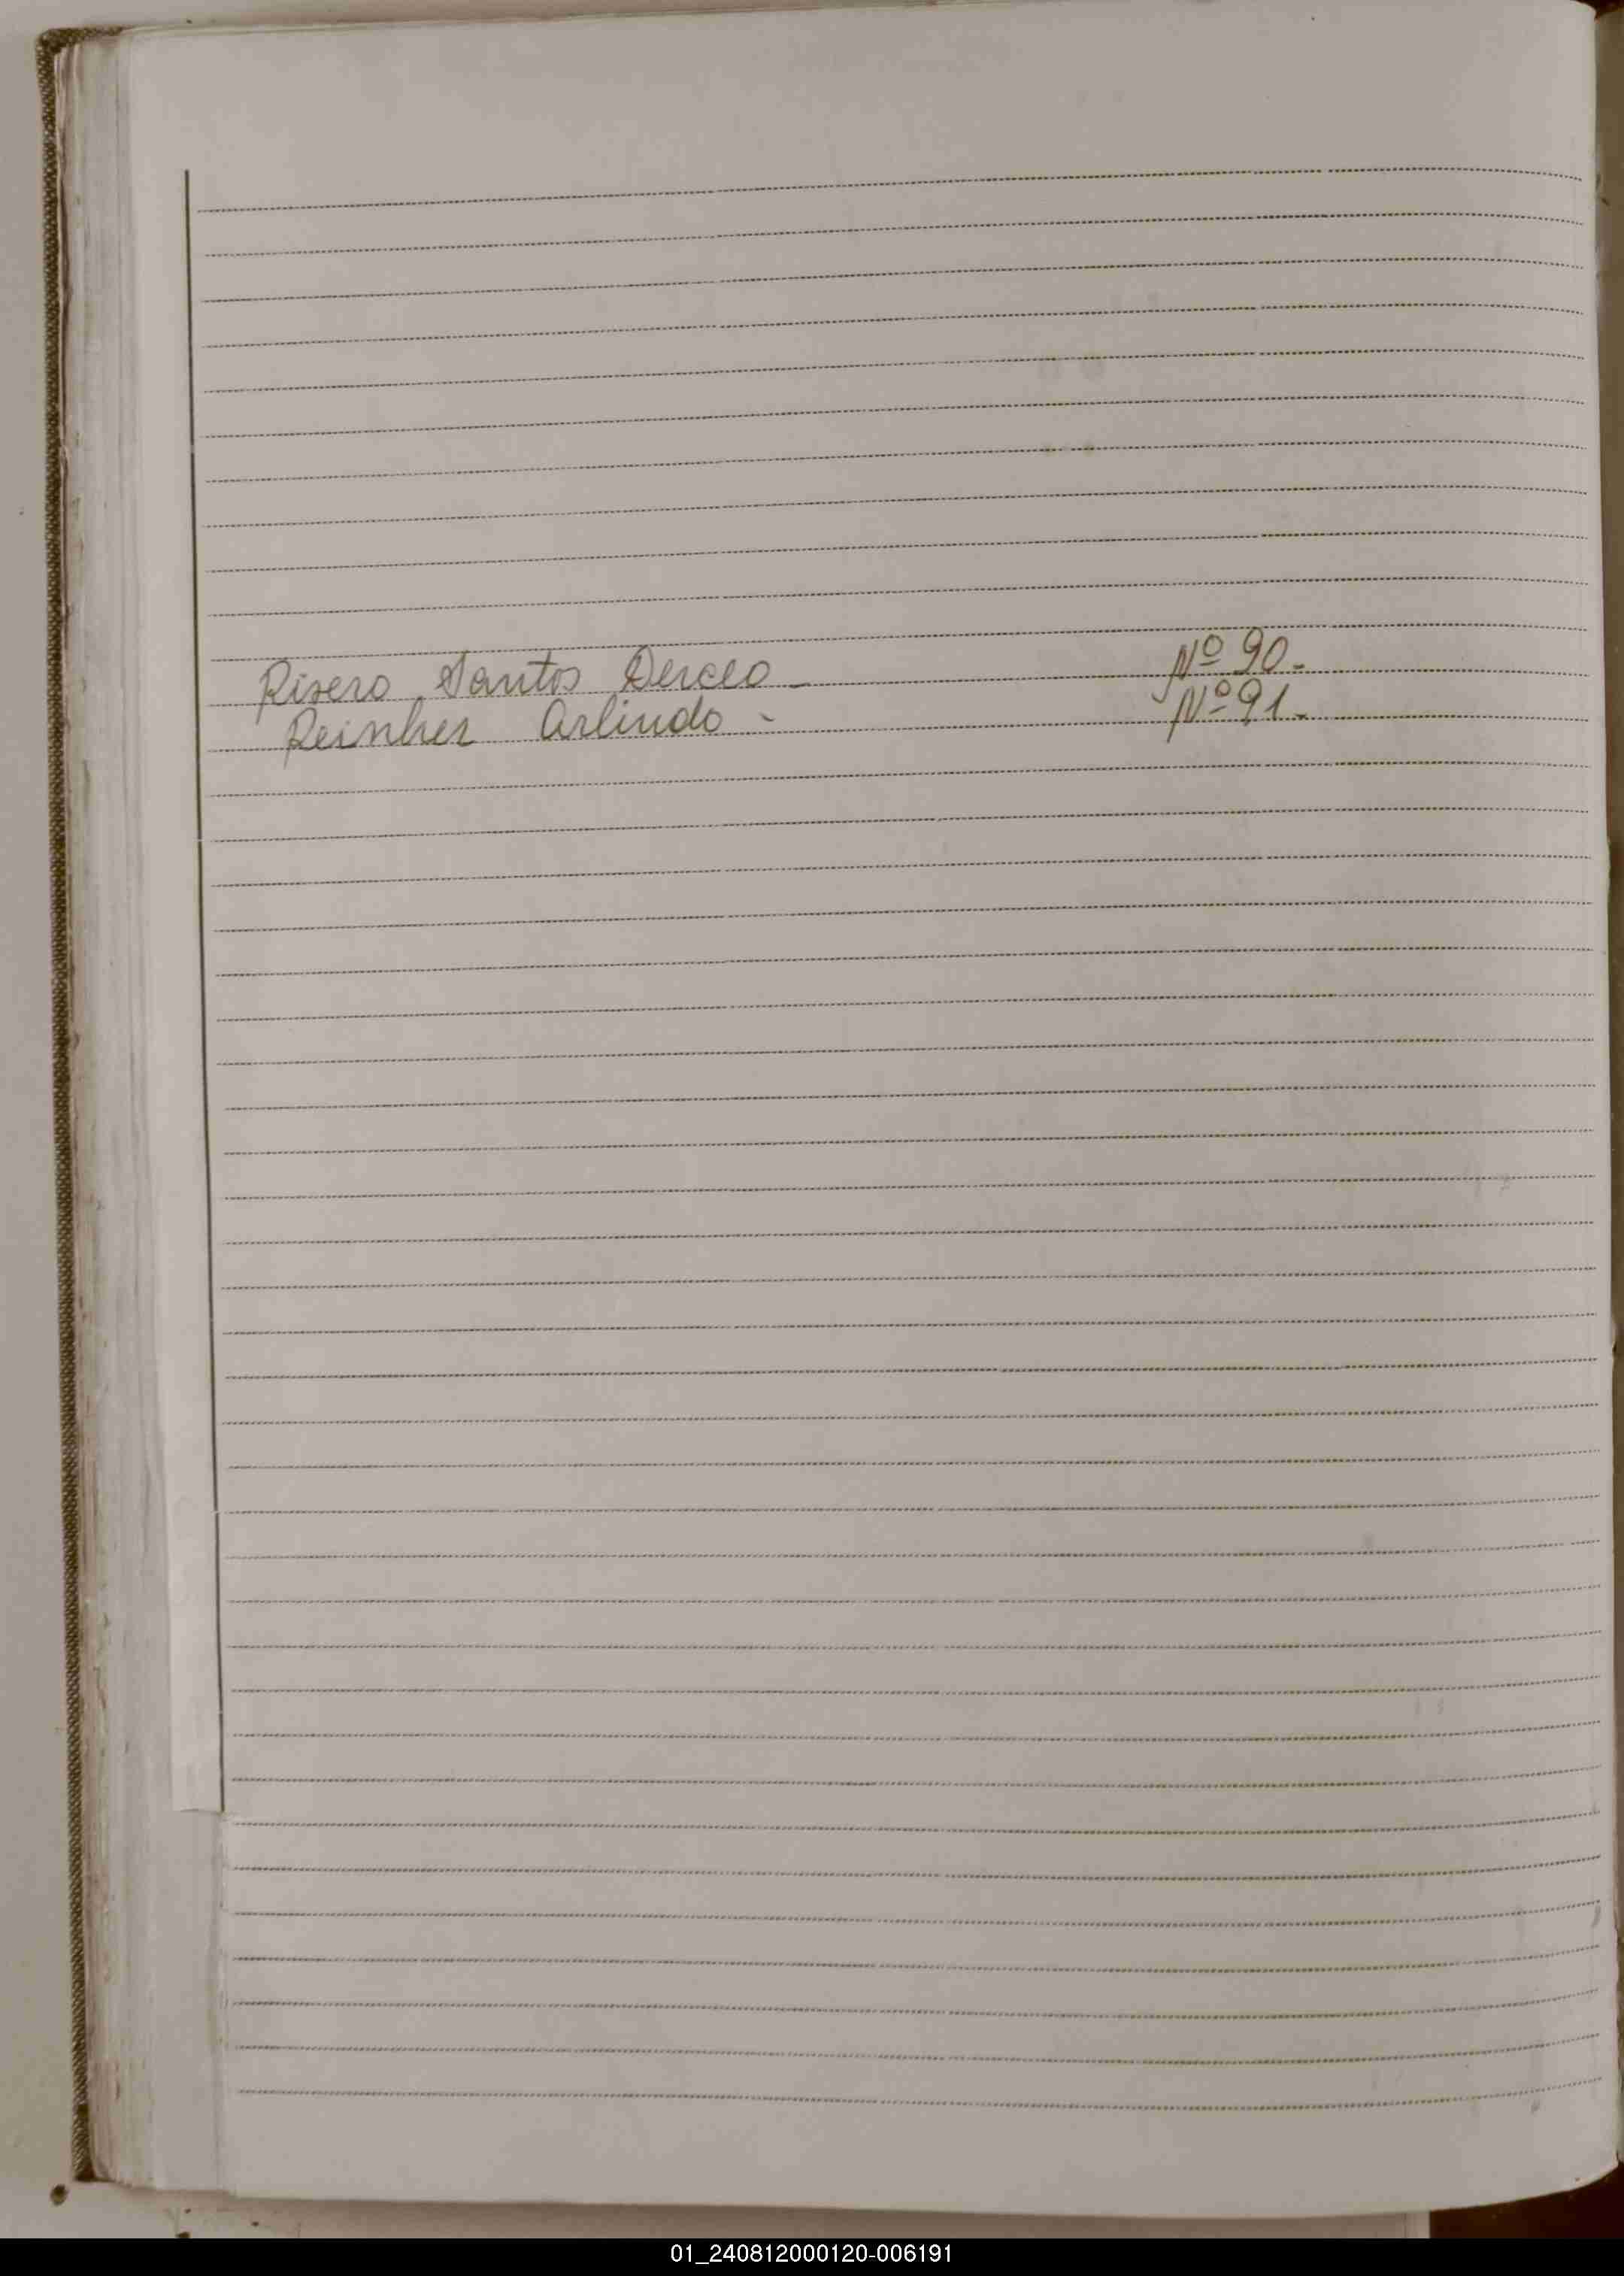 Risero Santos Derceo - Nº 90-
Reinher Arlindo - Nº 91-
01_240812000120-006191